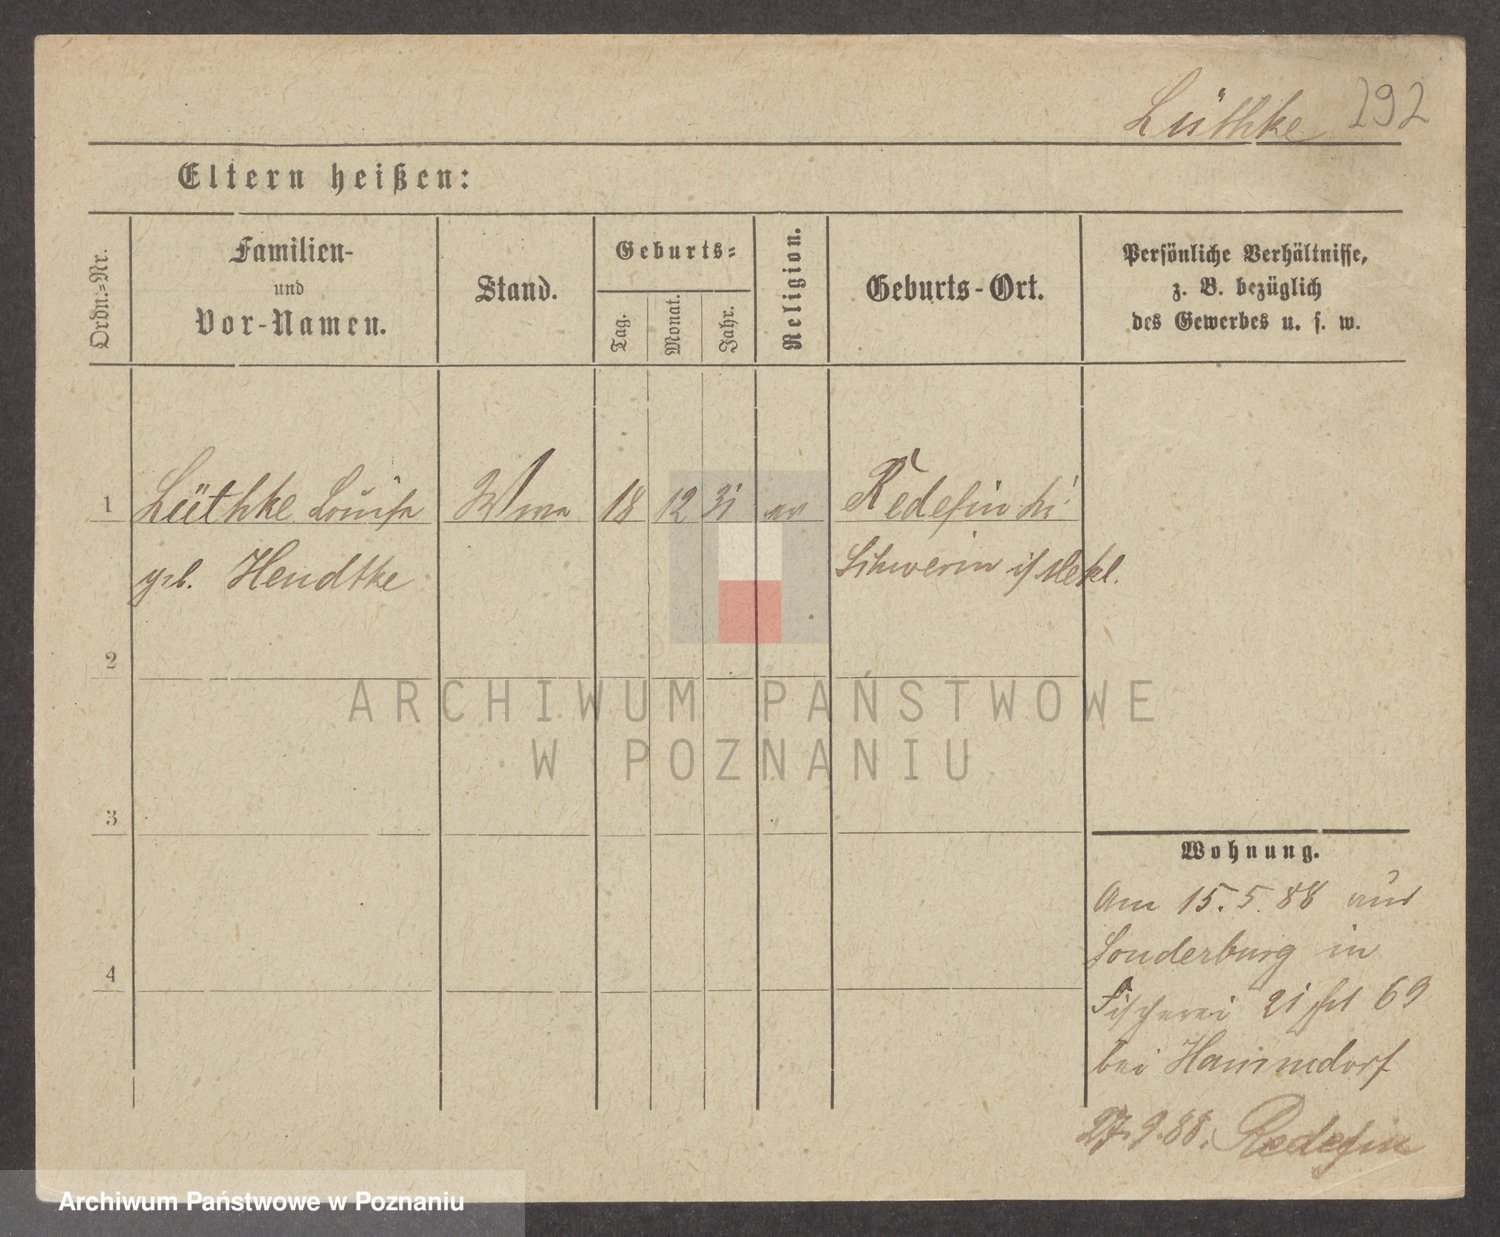 Lüthke 292
Eltern heißen:
Ordn.=Nr.
Familien-
und
Vor-Namen.
Stand.
Geburts=
Tag.
Monat.
Jahr.
Religion.
Geburts-Ort.
Persönliche Verhältnisse,
z. B. bezüglich
des Gewerbes u. s. w.
1 Lüthke Louise Wwe 18 12 31 ev Redefin bei
geb. Hendtke Schwerin i/ Mekl.
2
3
4
ARCHIWUM PAŃSTWOWE
W POZNANIU
Wohnung.
Am 15.5.88 aus
Sonderburg in
Fischerei 21 69
bei Hammdorf
27.9.88. Redefin
Archiwum Państwowe w Poznaniu